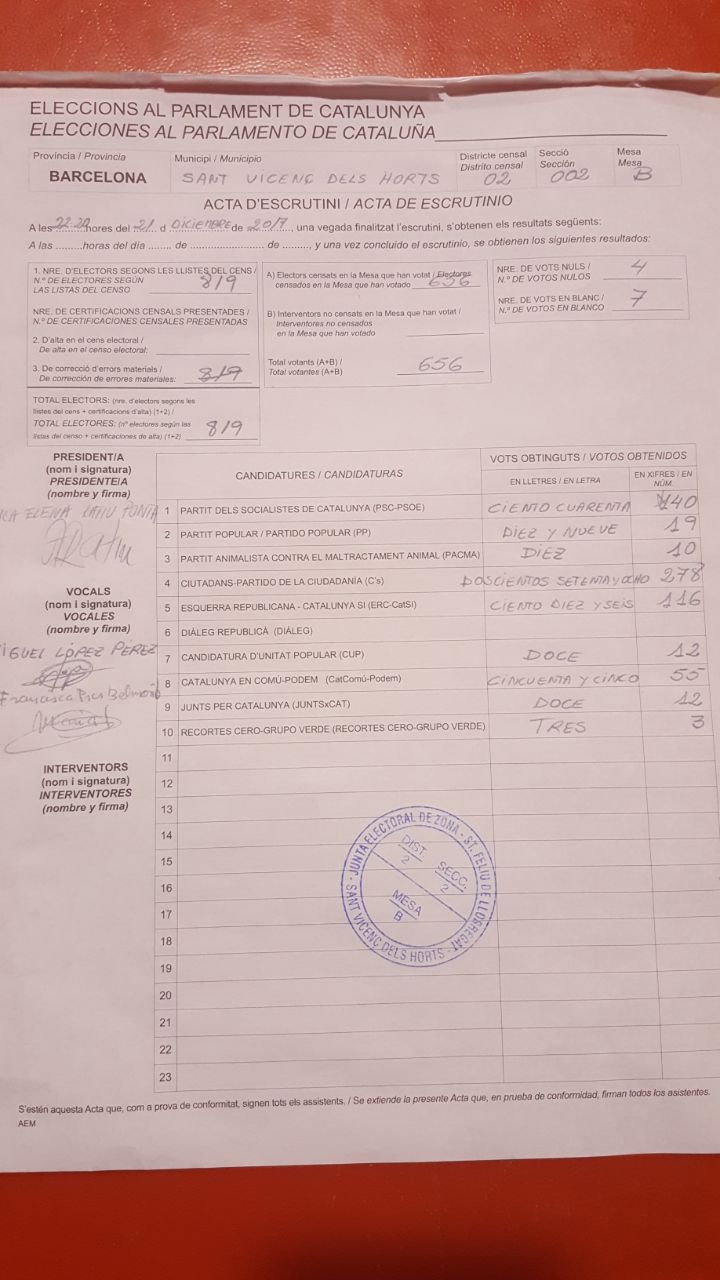 ELECCIONS AL PARLAMENT DE CATALUNYA
ELECCIONES AL PARLAMENTO DE CATALUÑA
Província / Provincia
BARCELONA
Municipi / Municipio
SANT VICENÇ DELS HORTS
Districte censal
Distrito censal
02
Secció
Sección
002
Mesa
Mesa
B
ACTA D'ESCRUTINI / ACTA DE ESCRUTINIO
A les 22.20 hores del 21 d DICIEMBRE de 2017, una vegada finalitzat l'escrutini, s'obtenen els resultats següents:
A las ........horas del día ....... de ....................... de ........, y una vez concluido el escrutinio, se obtienen los siguientes resultados:
1. NRE. D'ELECTORS SEGONS LES LLISTES DEL CENS /
N.º DE ELECTORES SEGÚN
LAS LISTAS DEL CENSO 819
NRE. DE CERTIFICACIONS CENSALS PRESENTADES /
N.º DE CERTIFICACIONES CENSALES PRESENTADAS
2. D'alta en el cens electoral /
De alta en el censo electoral:
3. De correcció d'errors materials /
De corrección de errores materiales: 819
TOTAL ELECTORS: (nre. d'electors segons les
llistes del cens + certificacions d'alta) (1+2) /
TOTAL ELECTORES: (nº electores según las
listas del censo + certificaciones de alta) (1+2) 819
A) Electors censats en la Mesa que han votat / Electores
censados en la Mesa que han votado 656
B) Interventors no censats en la Mesa que han votat /
Interventores no censados
en la Mesa que han votado
Total votants (A+B) /
Total votantes (A+B) 656
NRE. DE VOTS NULS /
N.º DE VOTOS NULOS 4
NRE. DE VOTS EN BLANC /
N.º DE VOTOS EN BLANCO 7
PRESIDENT/A
(nom i signatura)
PRESIDENTE/A
(nombre y firma)
ELENA
VOCALS
(nom i signatura)
VOCALES
(nombre y firma)
IGUEL LÓPEZ PÉREZ
Francisca
INTERVENTORS
(nom i signatura)
INTERVENTORES
(nombre y firma)
CANDIDATURES / CANDIDATURAS
VOTS OBTINGUTS / VOTOS OBTENIDOS
EN LLETRES / EN LETRA
EN XIFRES / EN NÚM.
1 PARTIT DELS SOCIALISTES DE CATALUNYA (PSC-PSOE) CIENTO CUARENTA 140
2 PARTIT POPULAR / PARTIDO POPULAR (PP) DIEZ Y NUEVE 19
3 PARTIT ANIMALISTA CONTRA EL MALTRACTAMENT ANIMAL (PACMA) DIEZ 10
4 CIUTADANS-PARTIDO DE LA CIUDADANÍA (C's) DOSCIENTOS SETENTA Y OCHO 278
5 ESQUERRA REPUBLICANA - CATALUNYA SI (ERC-CatSI) CIENTO DIEZ Y SEIS 116
6 DIÀLEG REPUBLICÀ (DIÀLEG)
7 CANDIDATURA D'UNITAT POPULAR (CUP) DOCE 12
8 CATALUNYA EN COMÚ-PODEM (CatComú-Podem) CINCUENTA Y CINCO 55
9 JUNTS PER CATALUNYA (JUNTSxCAT) DOCE 12
10 RECORTES CERO-GRUPO VERDE (RECORTES CERO-GRUPO VERDE) TRES 3
11
12
13
14
15
16
17
18
19
20
21
22
23
JUNTA ELECTORAL DE ZONA - ST. FELIU DE LLOBREGAT - SANT VICENÇ DELS HORTS -
DIST. 2
SECC. 2
MESA B
S'estén aquesta Acta que, com a prova de conformitat, signen tots els assistents. / Se extiende la presente Acta que, en prueba de conformidad, firman todos los asistentes.
AEM